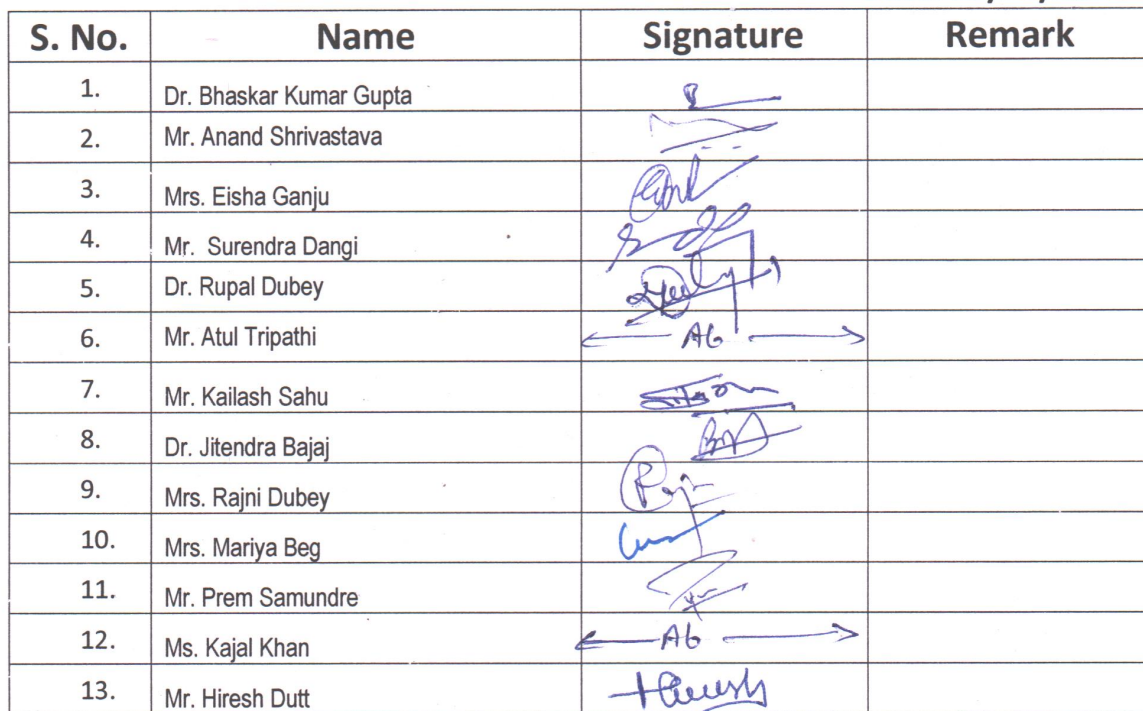 S. No. Name Signature Remark
1. Dr. Bhaskar Kumar Gupta
2. Mr. Anand Shrivastava
3. Mrs. Eisha Ganju
4. Mr. Surendra Dangi
5. Dr. Rupal Dubey
6. Mr. Atul Tripathi Ab
7. Mr. Kailash Sahu
8. Dr. Jitendra Bajaj
9. Mrs. Rajni Dubey
10. Mrs. Mariya Beg
11. Mr. Prem Samundre
12. Ms. Kajal Khan Ab
13. Mr. Hiresh Dutt